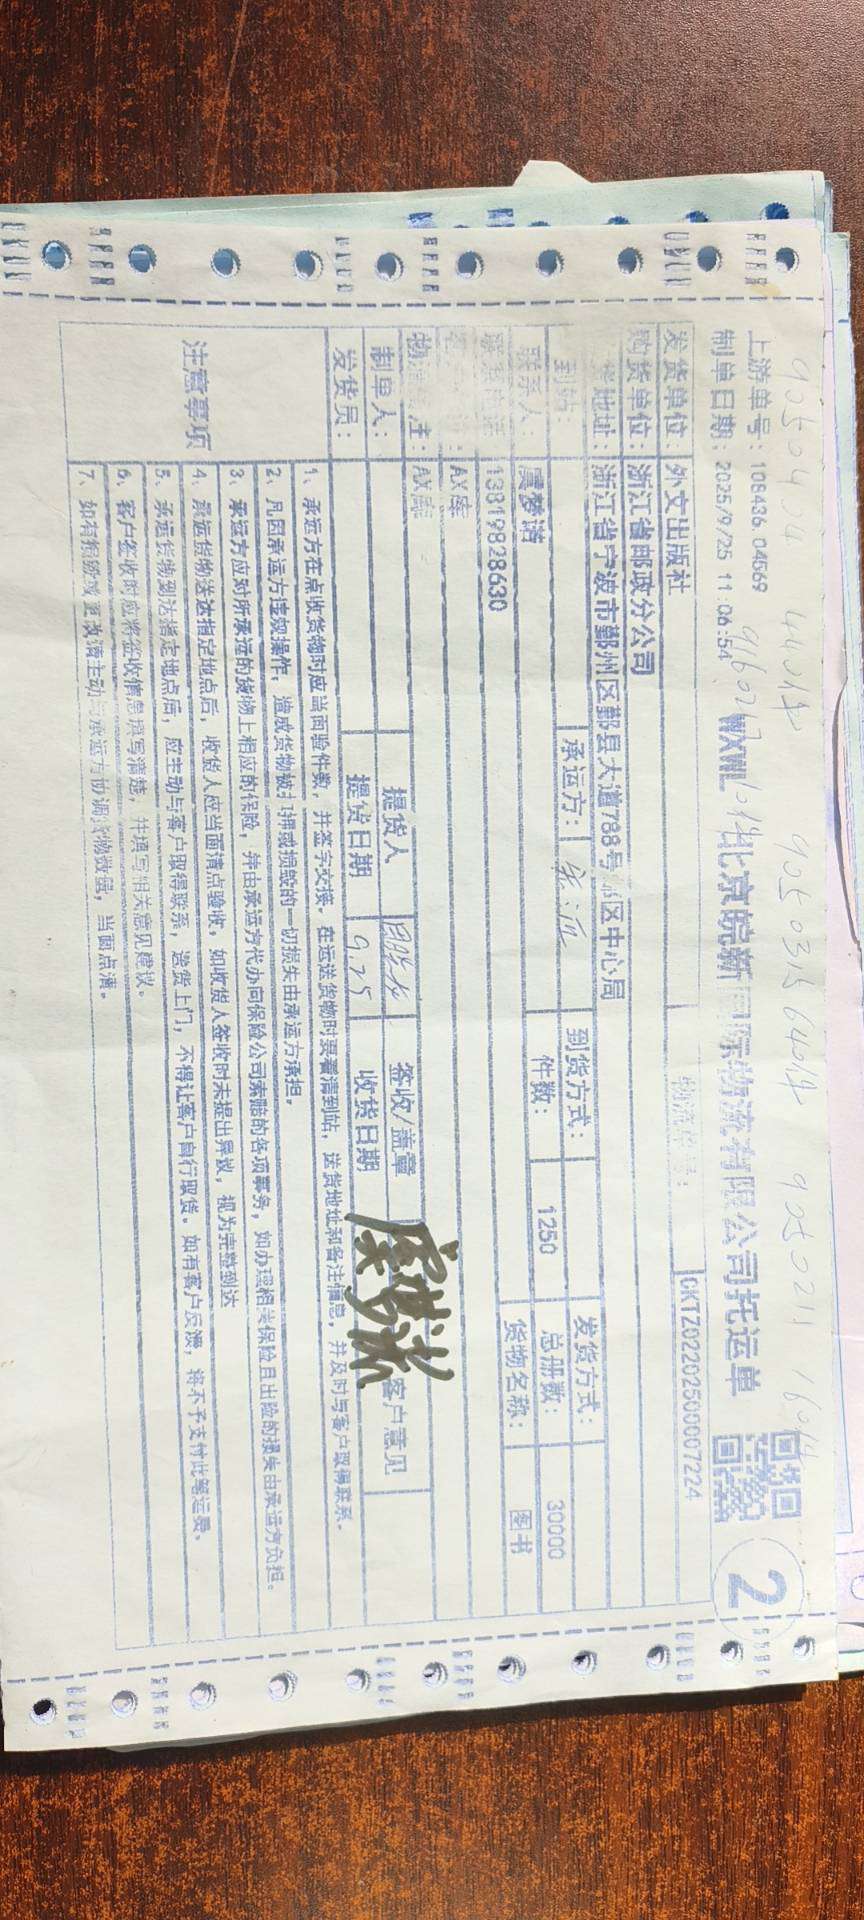 9050434 440件 9050315 640件 9050211 160件
9660217 10件
上游单号：108436.04569
制单日期：2025/9/25 11:06:54
WXWL 北京皖新国际物流有限公司托运单
2
发货单位：外文出版社
物流单号：
CKTZ02202500007224
购货单位：浙江省邮政分公司
地址：浙江省宁波市鄞州区鄞县大道788号 区中心局
到站：
承运方：
到货方式：
发货方式：
联系人：虞梦洁
件数：1250
总册数：30000
联系电话：13819828630
货物名称：图书
AX库
物流 注：AX库
制单人：
提货人
签收/盖章
虞梦洁
客户意见
发货员：
提货日期 9.25
收货日期
注意事项
1、承运方在点收货物时应当面验件数，并签字交接。在运送货物时要看清到站，送货地址和备注信息，并及时与客户取得联系。
2、凡因承运方违规操作，造成货物被扣押或损毁的一切损失由承运方承担。
3、承运方应对所承运的货物上相应的保险，并由承运方代办向保险公司索赔的各项事务，如办理相关保险且出险的损失由承运方负担。
4、承运货物送达指定地点后，收货人应当面清点验收，如收货人签收时未提出异议，视为完整到达
5、承运货物到达指定地点后，应主动与客户取得联系，送货上门，不得让客户自行取货。如有客户反馈，将不予支付此笔运费。
6、客户签收时应将签收信息填写清楚，并填写相关意见建议。
7、如有损毁或更改请主动与承运方协调货物数据，当面点清。